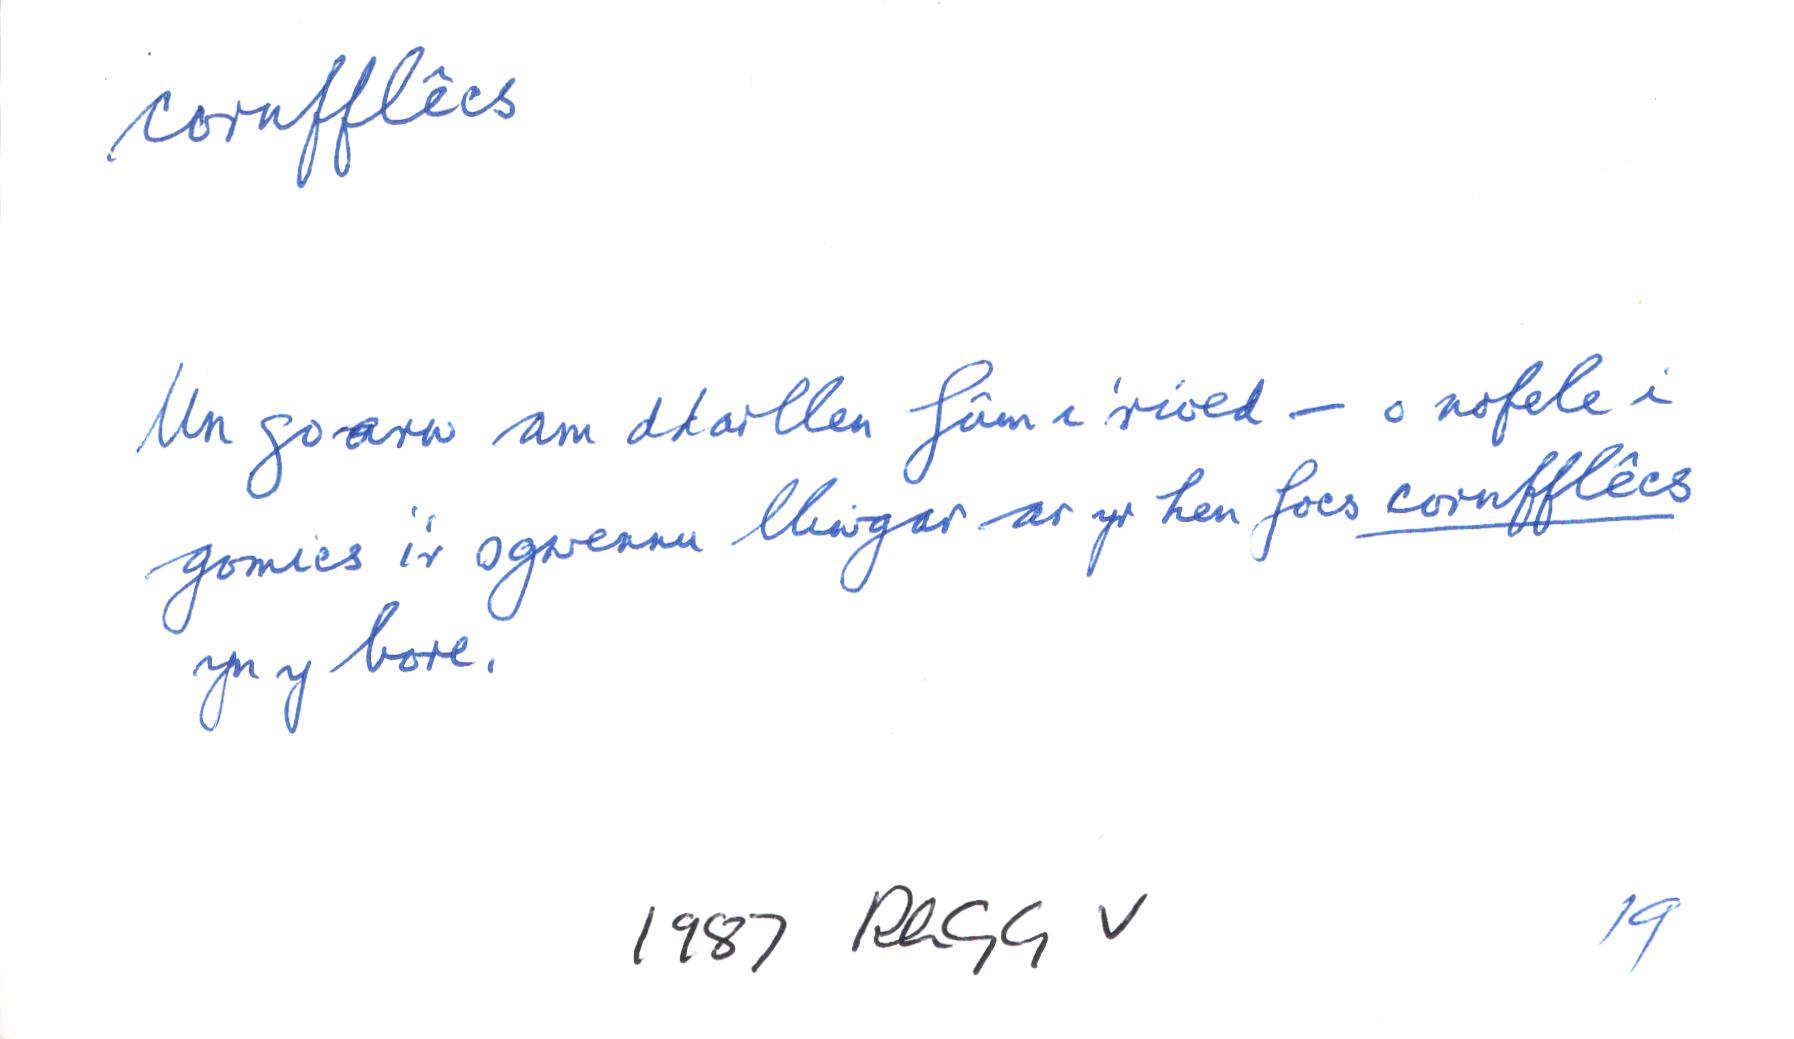 cornfflêcs
Un go arw am ddarllen fûm i 'rioed – o nofele i
gomics i'r ogwennu llwgar ar yr hen focs cornfflêcs
yn y bore.
1987 RhGG V 19